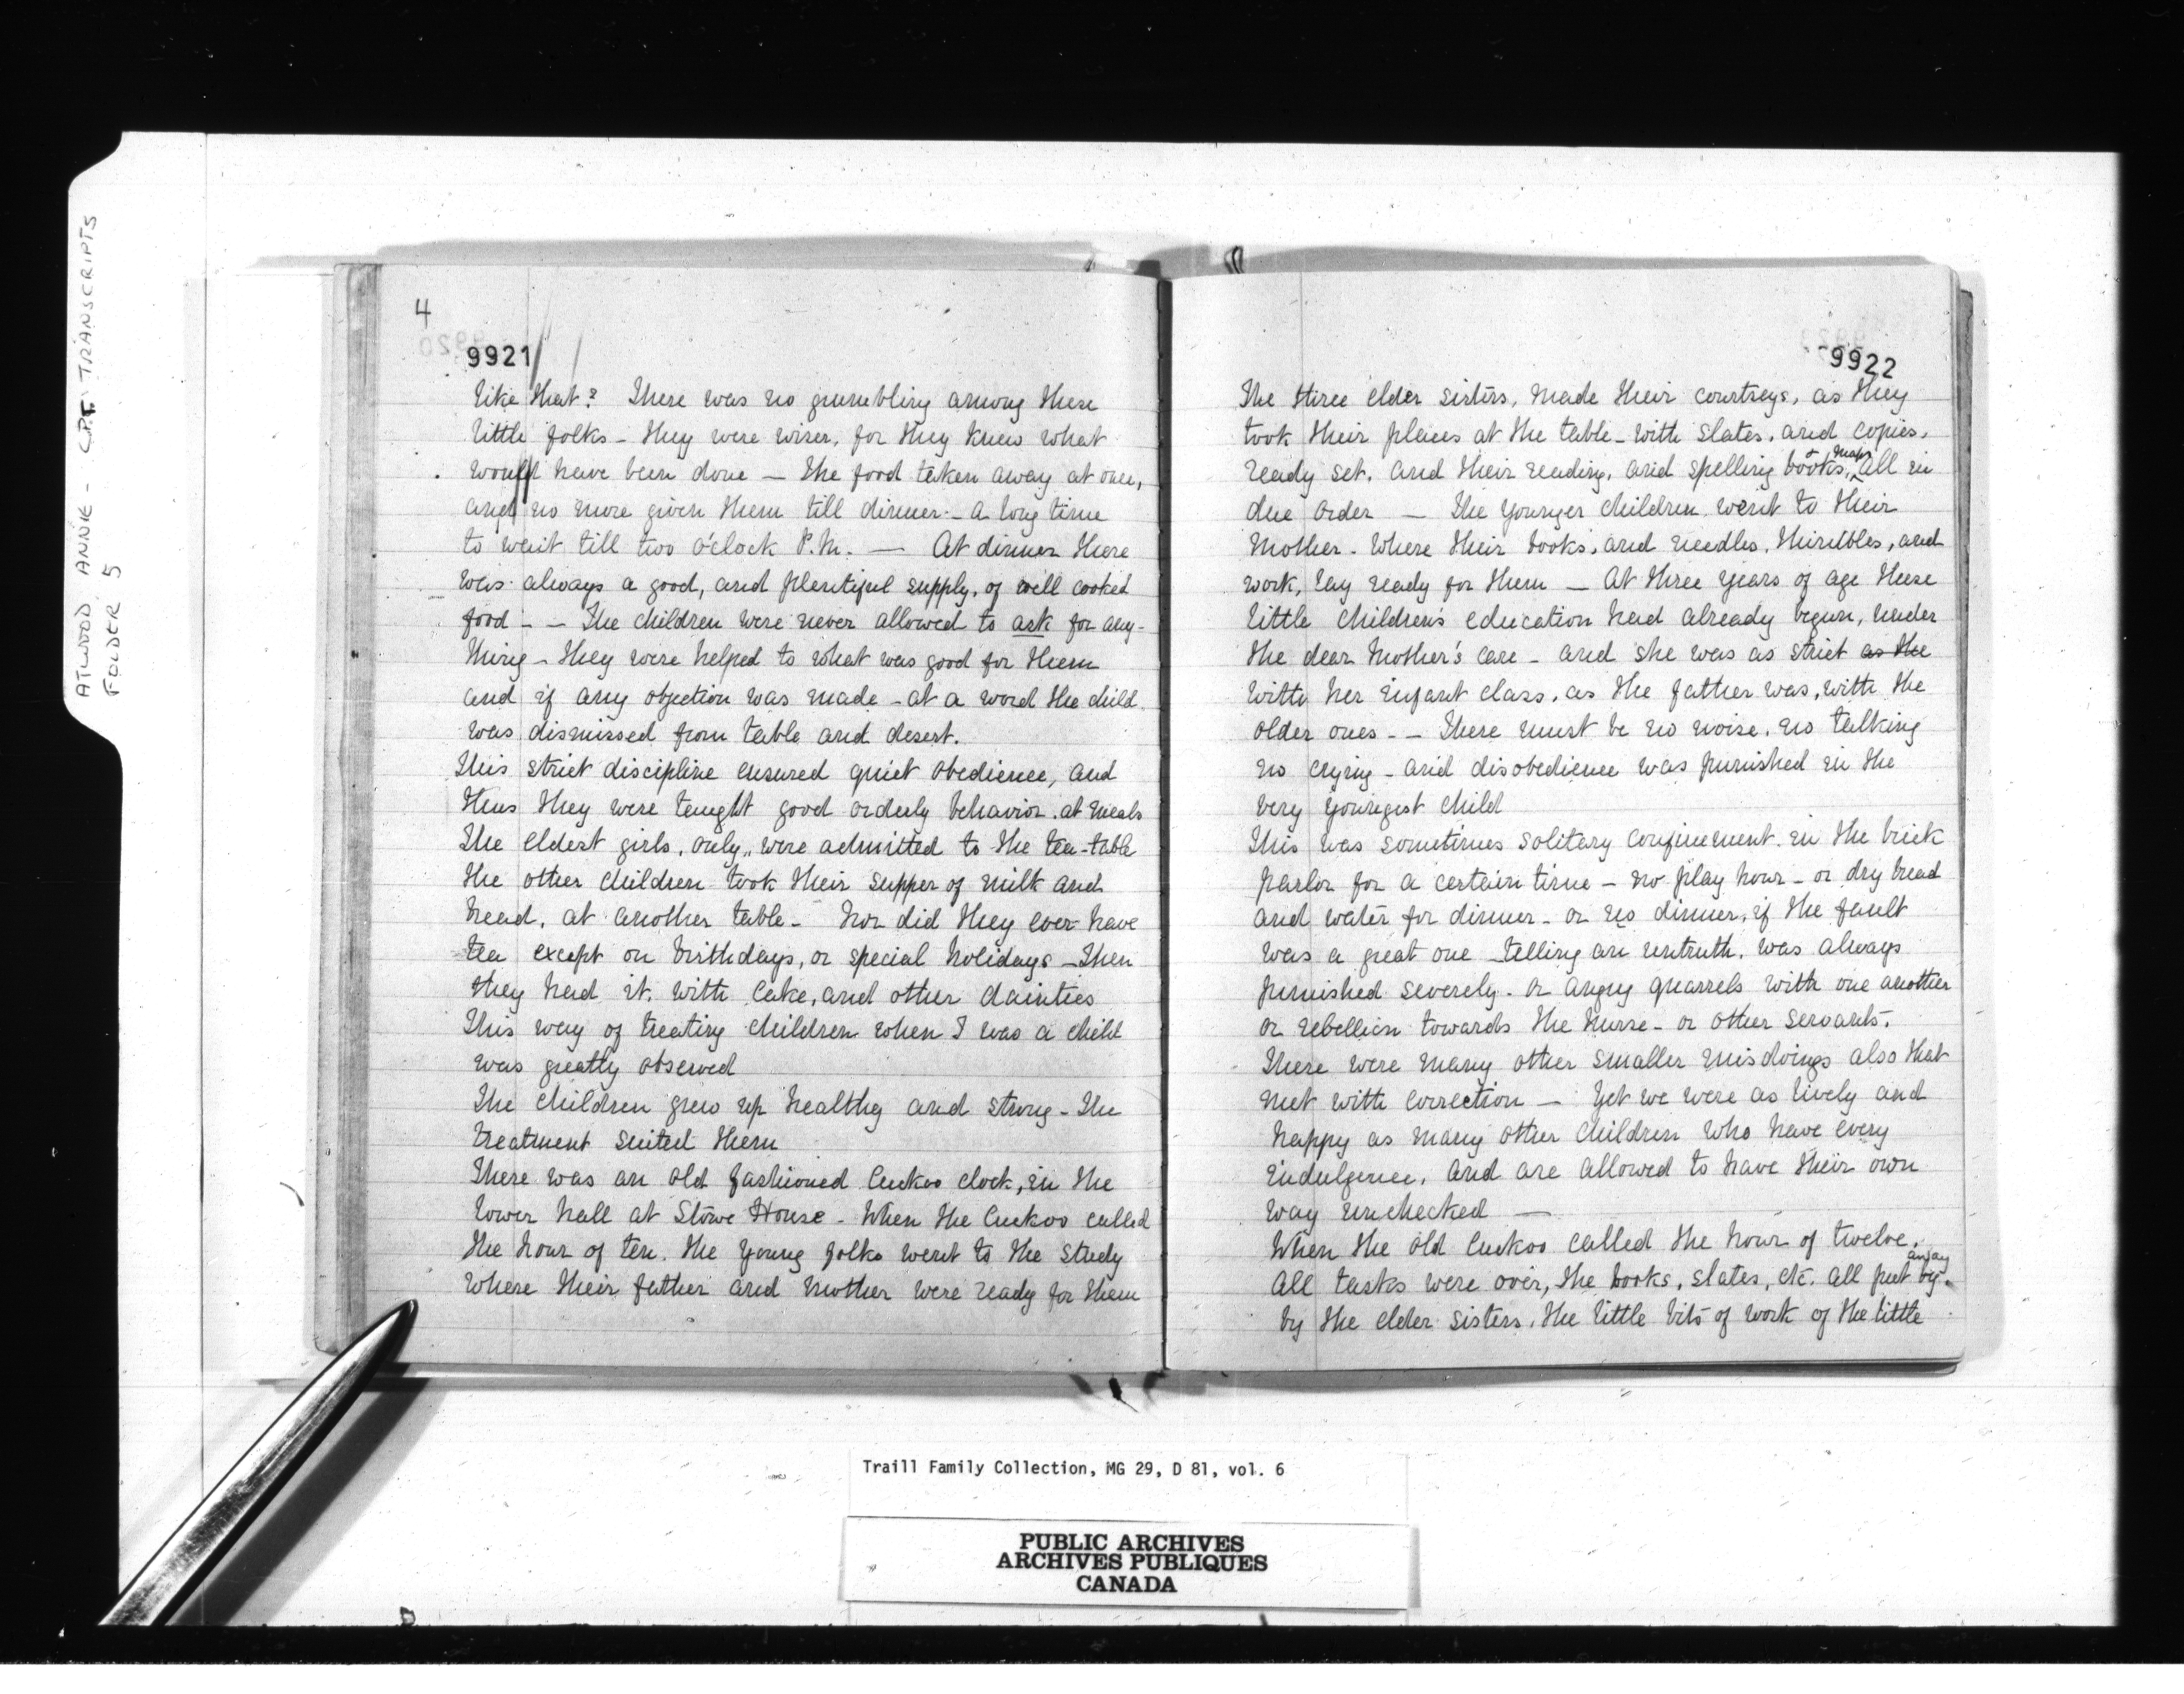 ATWOOD, ANNIE - C.P.T. TRANSCRIPTS
FOLDER 5
4
9921
like that? There was no grumbling among these
little folks - they were wiser, for they knew what
would have been done — the food taken away at once,
and no more given them till dinner - a long time
to wait till two o'clock P.M. — At dinner there
was always a good, and plentiful supply, of well cooked
food - - The children were never allowed to ask for any-
thing - they were helped to what was good for them
and if any objection was made - at a word the child
was dismissed from table and desert.
This strict discipline ensured quiet obedience, and
thus they were taught good orderly behavior. at meals
The eldest girls, only, were admitted to the tea-table
the other children took their supper of milk and
bread, at another table - Nor did they ever have
tea except on birthdays, or special holidays - Then
they had it. with cake, and other dainties
This way of treating children when I was a child
was greatly observed
The children grew up healthy and strong - The
treatment suited them
There was an old fashioned Cuckoo clock, in the
lower hall at Stowe House - When the Cuckoo called
the hour of ten. the young folks went to the study
where their father and mother were ready for them
9922
The three elder sisters, made their courtseys, as they
took their places at the table - with slates, and copies,
ready set. and their reading, and spelling books, & maps all in
due order — The younger children went to their
Mother - where their books, and needles, thimbles, and
work, lay ready for them — At three years of age these
little children's education had already begun, under
the dear Mother's care - and she was as strict as the
with her infant class, as the father was, with the
older ones - - There must be no noise, no talking
no crying - and disobedience was punished in the
very youngest child
This was sometimes solitary confinement. in the brick
parlor for a certain time - no play hour - or dry bread
and water for dinner - or no dinner, if the fault
was a great one - telling an untruth, was always
punished severely - or angry quarrels with one another
or rebellion towards the nurse - or other servants.
There were many other smaller misdoings also that
met with correction — Yet we were as lively and
happy as many other children who have every
indulgence, and are allowed to have their own
way unchecked —
When the old Cuckoo called the hour of twelve,
all tasks were over, the books, slates, etc. all put by away
by the elder sisters, the little bits of work of the little
Traill Family Collection, MG 29, D 81, vol. 6
PUBLIC ARCHIVES
ARCHIVES PUBLIQUES
CANADA